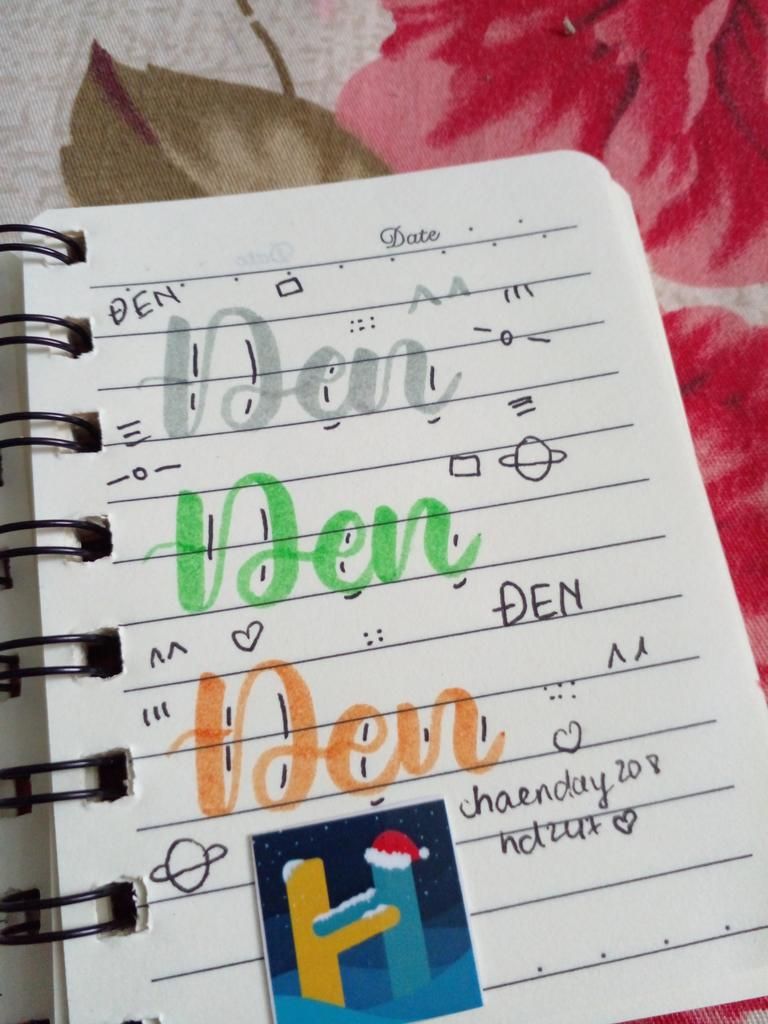 Date
ĐEN
Đen
Đen
ĐEN
Đen
chaenday208
hd247
H